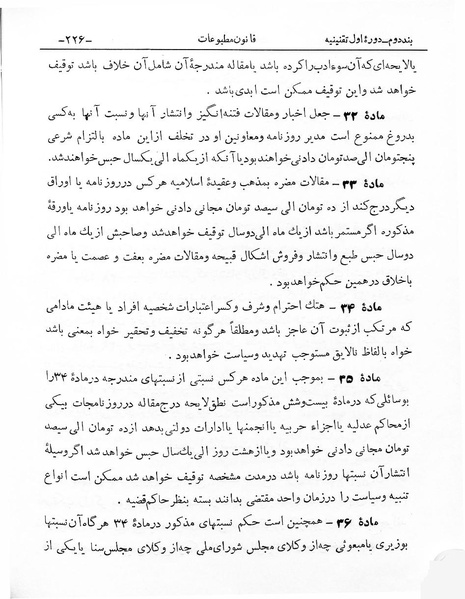 بند دوم ــ دورۀ اول تقنینیه
قانون مطبوعات
ــ ۲۲۶ ــ
یالایحه‌ای که آن سوء ادب را کرده باشد یا مقاله مندرجۀ آن شامل آن خلاف باشد توقیف
خواهد شد و این توقیف ممکن است ابدی باشد .
مادۀ ۳۲ ــ جعل اخبار و مقالات فتنه‌انگیز و انتشار آنها و نسبت آنها به کسی
بدروغ ممنوع است مدیر روزنامه و معاونین او در تخلف از این ماده بالتزام شرعی
پنجتومان الی صد تومان دادنی خواهند بود یا آنکه از یکماه الی یکسال حبس خواهند شد.
مادۀ ۳۳ ــ مقالات مضره بمذهب و عقیدۀ اسلامیه هرکس در روزنامه یا اوراق
دیگر درج کند از ده تومان الی سیصد تومان مجانی دادنی خواهد بود روزنامه یا ورقۀ
مذکوره اگر مستمر باشد از یک ماه الی دو سال توقیف خواهد شد و صاحبش از یک ماه الی
دو سال حبس طبع و انتشار و فروش اشکال قبیحه و مقالات مضره بعفت و عصمت یا مضره
باخلاق در همین حکم خواهد بود .
مادۀ ۳۴ ــ هتك احترام و شرف و کسر اعتبارات شخصیه افراد یا هیئت مادامی
که مرتکب از ثبوت آن عاجز باشد و مطلقاً هرگونه تخفیف و تحقیر خواه بمعنی باشد
خواه بالفاظ نالایق مستوجب تهدید و سیاست خواهد بود .
مادۀ ۳۵ ــ بموجب این ماده هرکس نسبتی از نسبتهای مندرجه در مادۀ ۳۴ را
بوسائلی که در مادۀ بیست و شش مذکور است نطق لایحه درج مقاله در روزنامجات بیکی
از محاکم عدلیه یا اجزاء حربیه یا انجمنها یا ادارات دولتی بدهد از ده تومان الی سیصد
تومان مجانی دادنی خواهد بود و یا از هشت روز الی یك سال حبس خواهد شد اگر وسیلۀ
انتشار آن نسبتها روزنامه باشد در مدت مشخصه توقیف خواهد شد ممکن است انواع
تنبیه و سیاست را در زمان واحد مقتضی بدانند بسته بنظر حاکم قضیه .
مادۀ ۳۶ ــ همچنین است حکم نسبتهای مذکور در مادۀ ۳۴ هرگاه آن نسبتها
بوزیری یا مبعوثی چه از وکلای مجلس شورای ملی چه از وکلای مجلس سنا یا یکی از